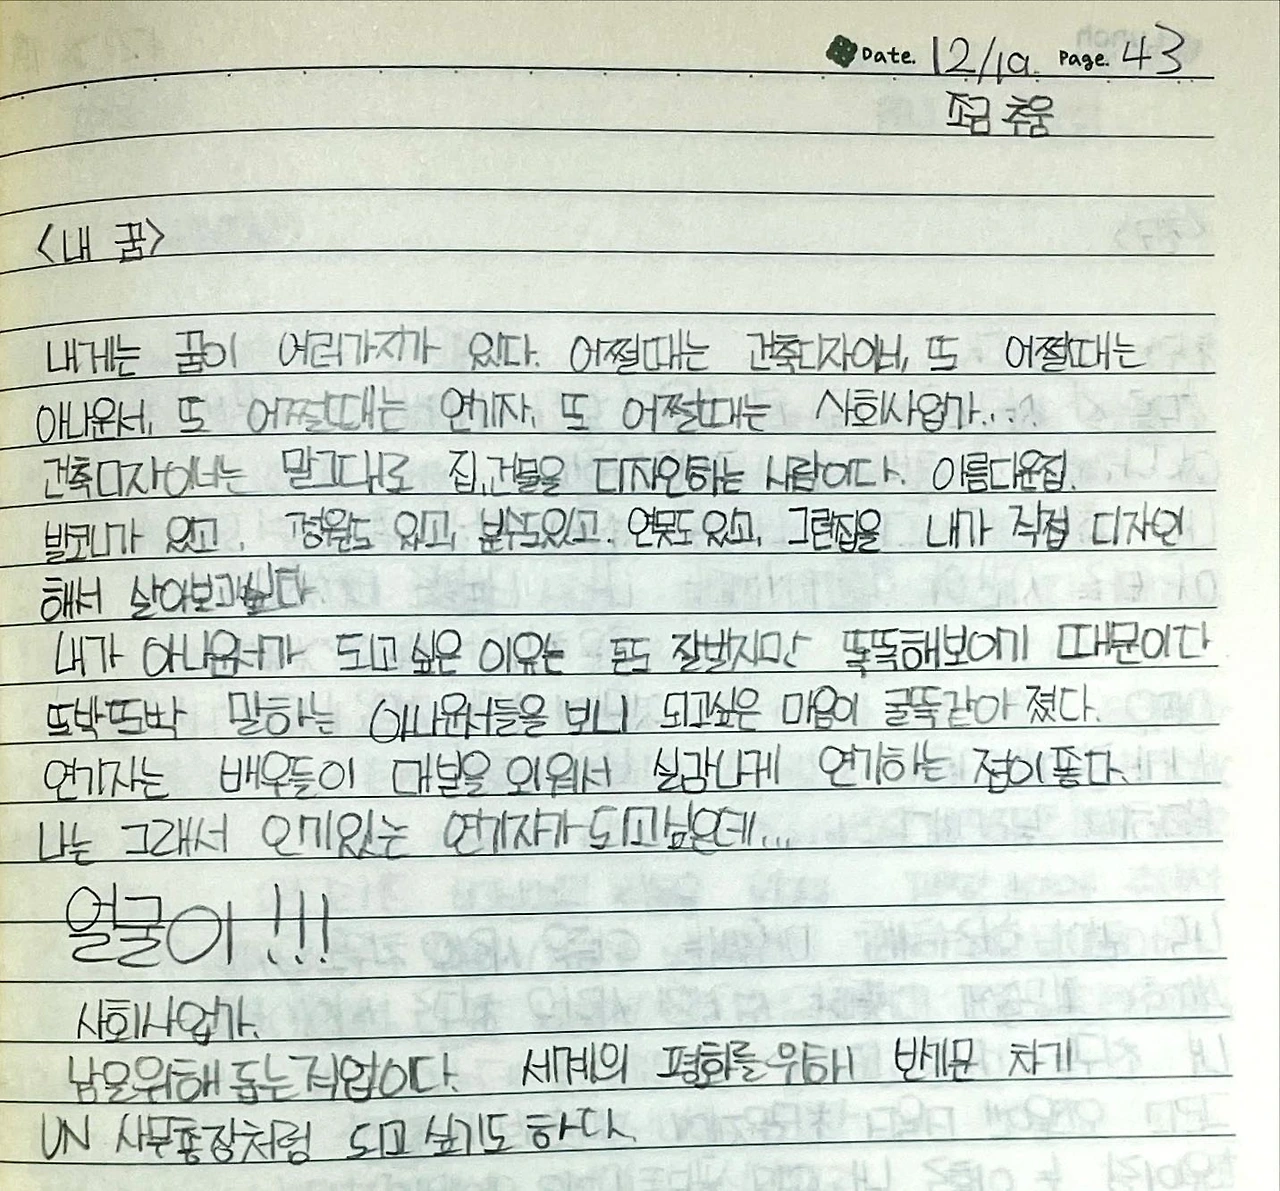 Date. 12/19. Page. 43
조금 추움
<내 꿈>
내게는 꿈이 여러가지가 있다. 어쩔때는 건축디자이너, 또 어쩔때는
아나운서, 또 어쩔때는 연기자, 또 어쩔때는 사회사업가...
건축디자이너는 말그대로 집,건물을 디자인하는 사람이다. 아름다운집.
발코니가 있고, 정원도 있고, 분수도있고, 연못도 있고, 그런집을 내가 직접 디자인
해서 살아보고싶다.
내가 아나운서가 되고 싶은 이유는 돈도 잘벌지만 똑똑해보이기 때문이다
또박또박 말하는 아나운서들을 보니 되고싶은 마음이 굴뚝같아 졌다.
연기자는 배우들이 대본을 외워서 실감나게 연기하는 점이 좋다.
나는 그래서 인기있는 연기자가 되고싶은데...
얼굴이 !!!
사회사업가.
남을위해 돕는 직업이다. 세계의 평화를 위해 반기문 차기
UN 사무총장처럼 되고 싶기도 하다.